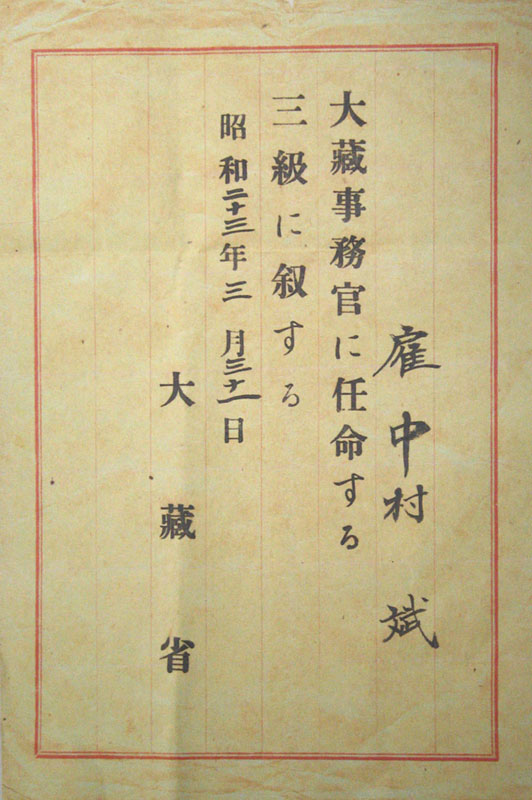 雇 中村 斌
大藏事務官に任命する
三級に叙する
昭和二十三年三月三十一日
大藏省